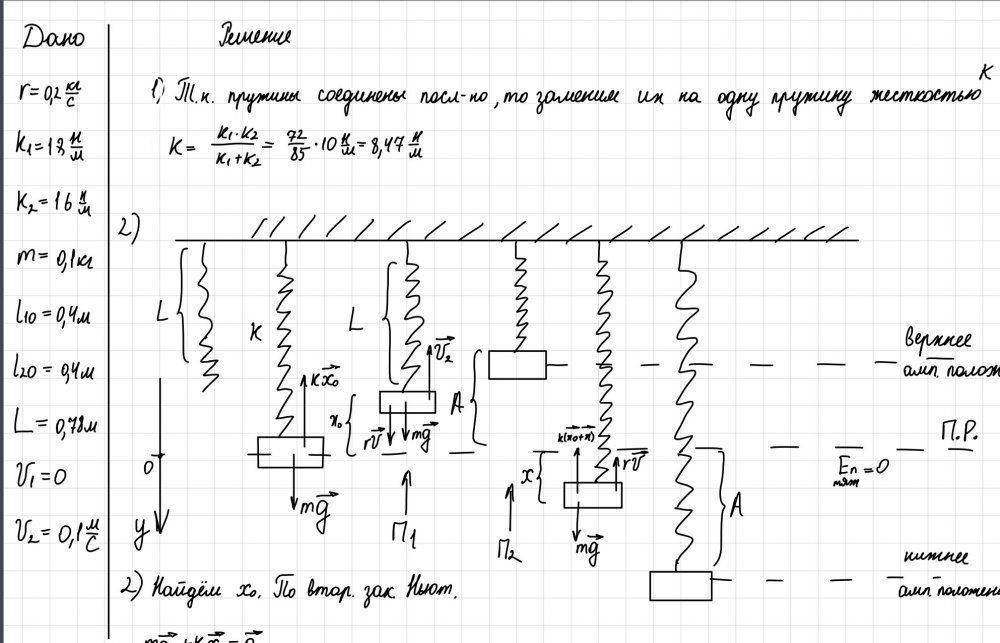 Дано
Решение
r = 0,2 кг/с
k₁ = 18 Н/м
k₂ = 16 Н/м
m = 0,1 кг
l₁₀ = 0,4 м
l₂₀ = 0,4 м
L = 0,78 м
V₁ = 0
V₂ = 0,1 м/с
1) Т.к. пружины соединены посл-но, то заменим их на одну пружину жесткостью K
K = K₁·K₂/K₁+K₂ = 72/85 · 10 Н/м = 8,47 Н/м
2)
L
K
L
kx₀
V₂
A
x₀
rV
mg
k(x₀+x)
rV
верхнее
амп. полож
П.Р.
0
mg
x
Eп тяж = 0
y
П₁
П₂
mg
A
нижнее
амп. положени
2) Найдём x₀. По втор. зак Ньют.